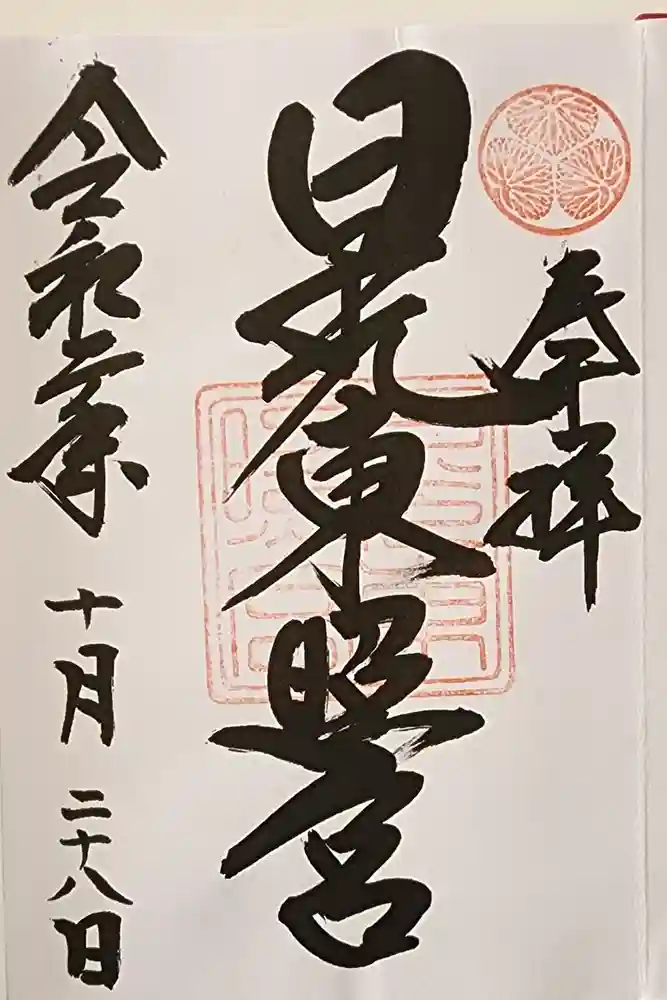 奉拝
日光東照宮
令和二年
十月
二十八日